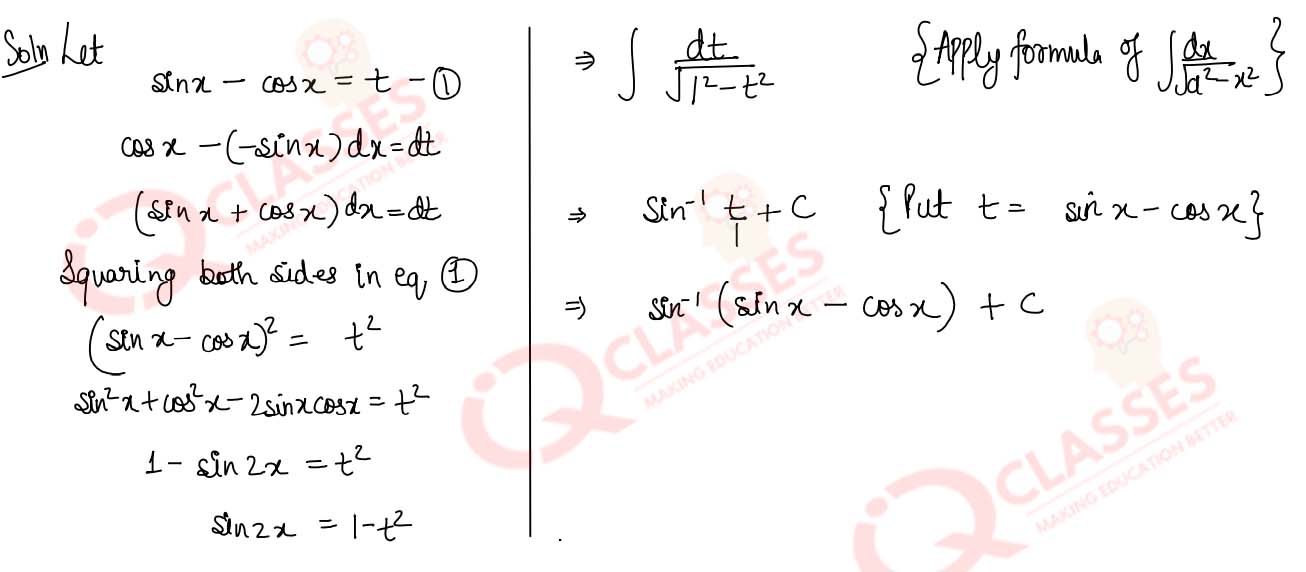 Soln Let
sinx - cosx = t - ①
cosx - (-sinx) dx = dt
(sinx + cosx) dx = dt
Squaring both sides in eq, ①
(sinx - cosx)² = t²
sin²x + cos²x - 2sinxcosx = t²
1 - sin2x = t²
sin2x = 1 - t²
⇒ ∫ dt/√1² - t² {Apply formula of ∫ dx/√a² - x²}
⇒ Sin⁻¹ t/1 + C {Put t = sinx - cosx}
⇒ sin⁻¹ (sinx - cosx) + C
IQ CLASSES
MAKING EDUCATION BETTER
IQ CLASSES
MAKING EDUCATION BETTER
IQ CLASSES
MAKING EDUCATION BETTER